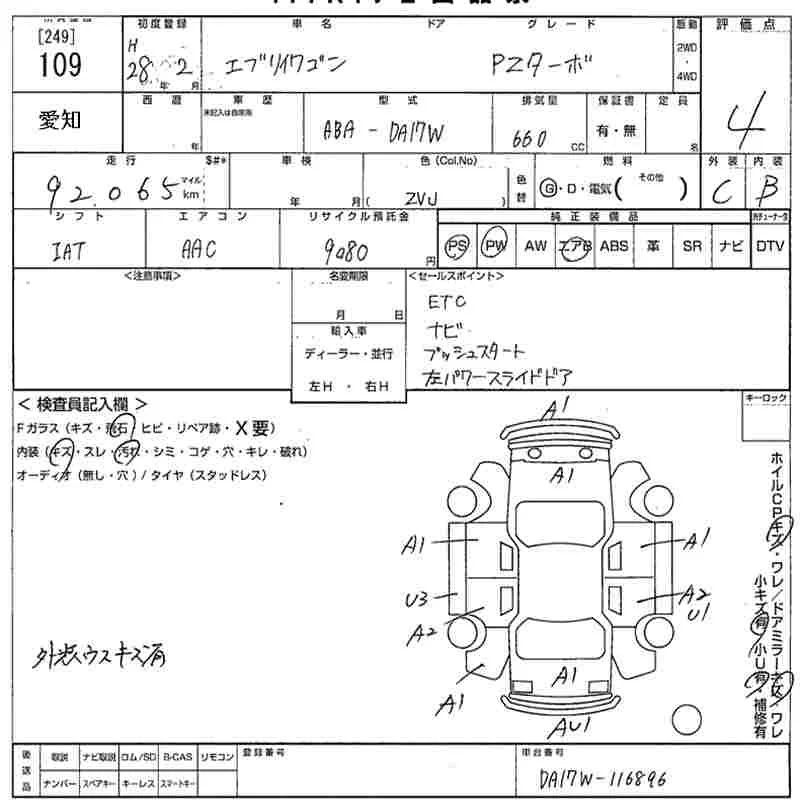 初度登録 車名 ドア グレード 駆動 評価点
[249]
109
H 28 年 2 月
エブリイワゴン PZターボ
2WD
・
4WD
4
愛知
西暦 車歴 型式 排気量 保証書 定員
未記入は自家用
年 ABA - DA17W 660 CC 有・無 名
走行 $#* 車検 色(Col,No) 燃料 外装 内装
92.065 マイル km 年 月 ( ZVJ ) 色替 G・D・電気( その他 ) C B
シフト エアコン リサイクル預託金 純正装備品
IAT AAC 9080 円 PS PW AW エアB ABS 革 SR ナビ DTV
<注意事項> 名変期限 <セールスポイント>
月 日
輸入車
ディーラー・並行
左H ・ 右H
ETC
ナビ
プッシュスタート
左パワースライドドア
<検査員記入欄> キーロック
Fガラス(キズ・飛石・ヒビ・リペア跡・X要)
内装(キズ・スレ・汚れ・シミ・コゲ・穴・キレ・破れ)
オーディオ(無し・穴)/タイヤ(スタッドレス)
A1
A1
A1 A1
U3 A2
U1
A2
A1 A1
AU1
外装ウスキズ有
ホイルCPキズ・ワレ/ドアミラーキズ/ワレ
小キズ有・小U有・補修有
後返品 取説 ナビ取説 ロム/SD B-CAS リモコン 登録番号 車台番号
ナンバー スペアキー キーレス スマートキー DA17W-116896